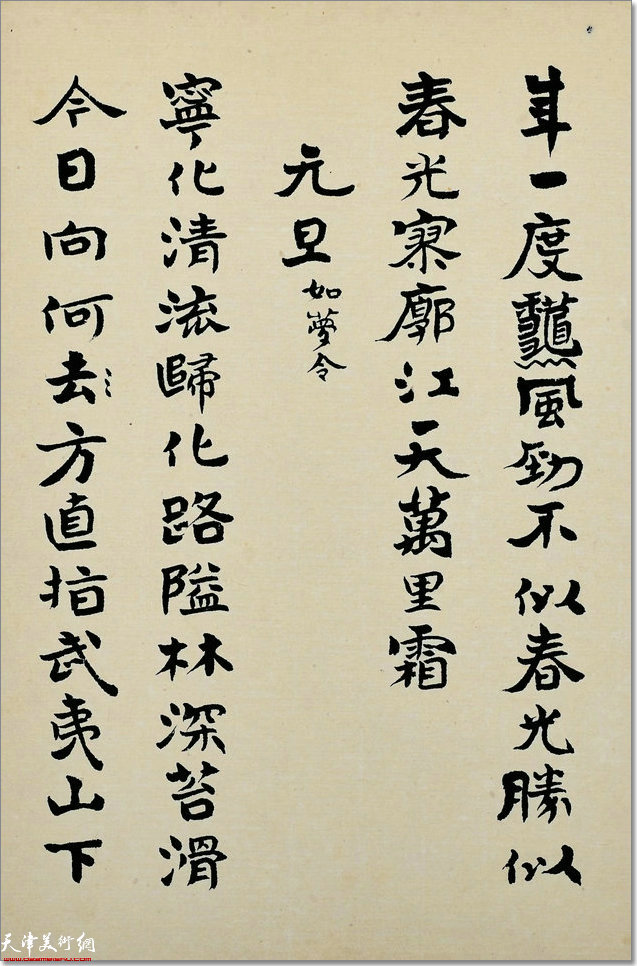 年一度龝風勁不似春光勝似
春光寥廓江天萬里霜
元旦 如夢令
寧化清流歸化路隘林深苔滑
今日向何去〻方直指武夷山下
天津美術網